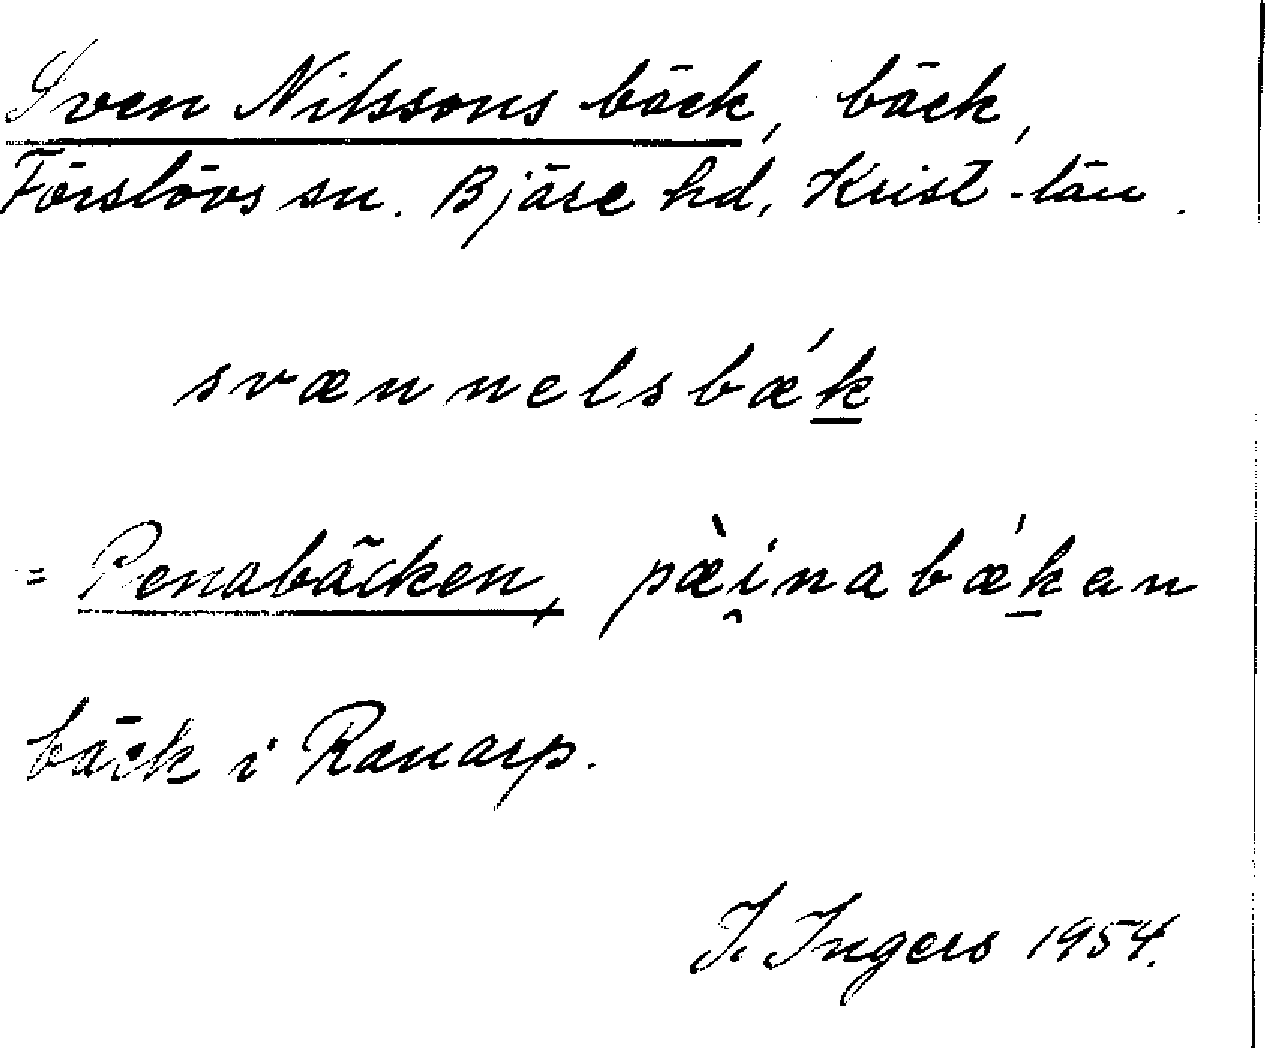 Sven Nilssons bäck, bäck,
Förslövs sn. Bjäre hd, Krist-län.
svænnelsbæ´k
= Penabäcken, pæ̀i̯nabæ´kan
bäck i Ranarp.
I. Ingers 1954.